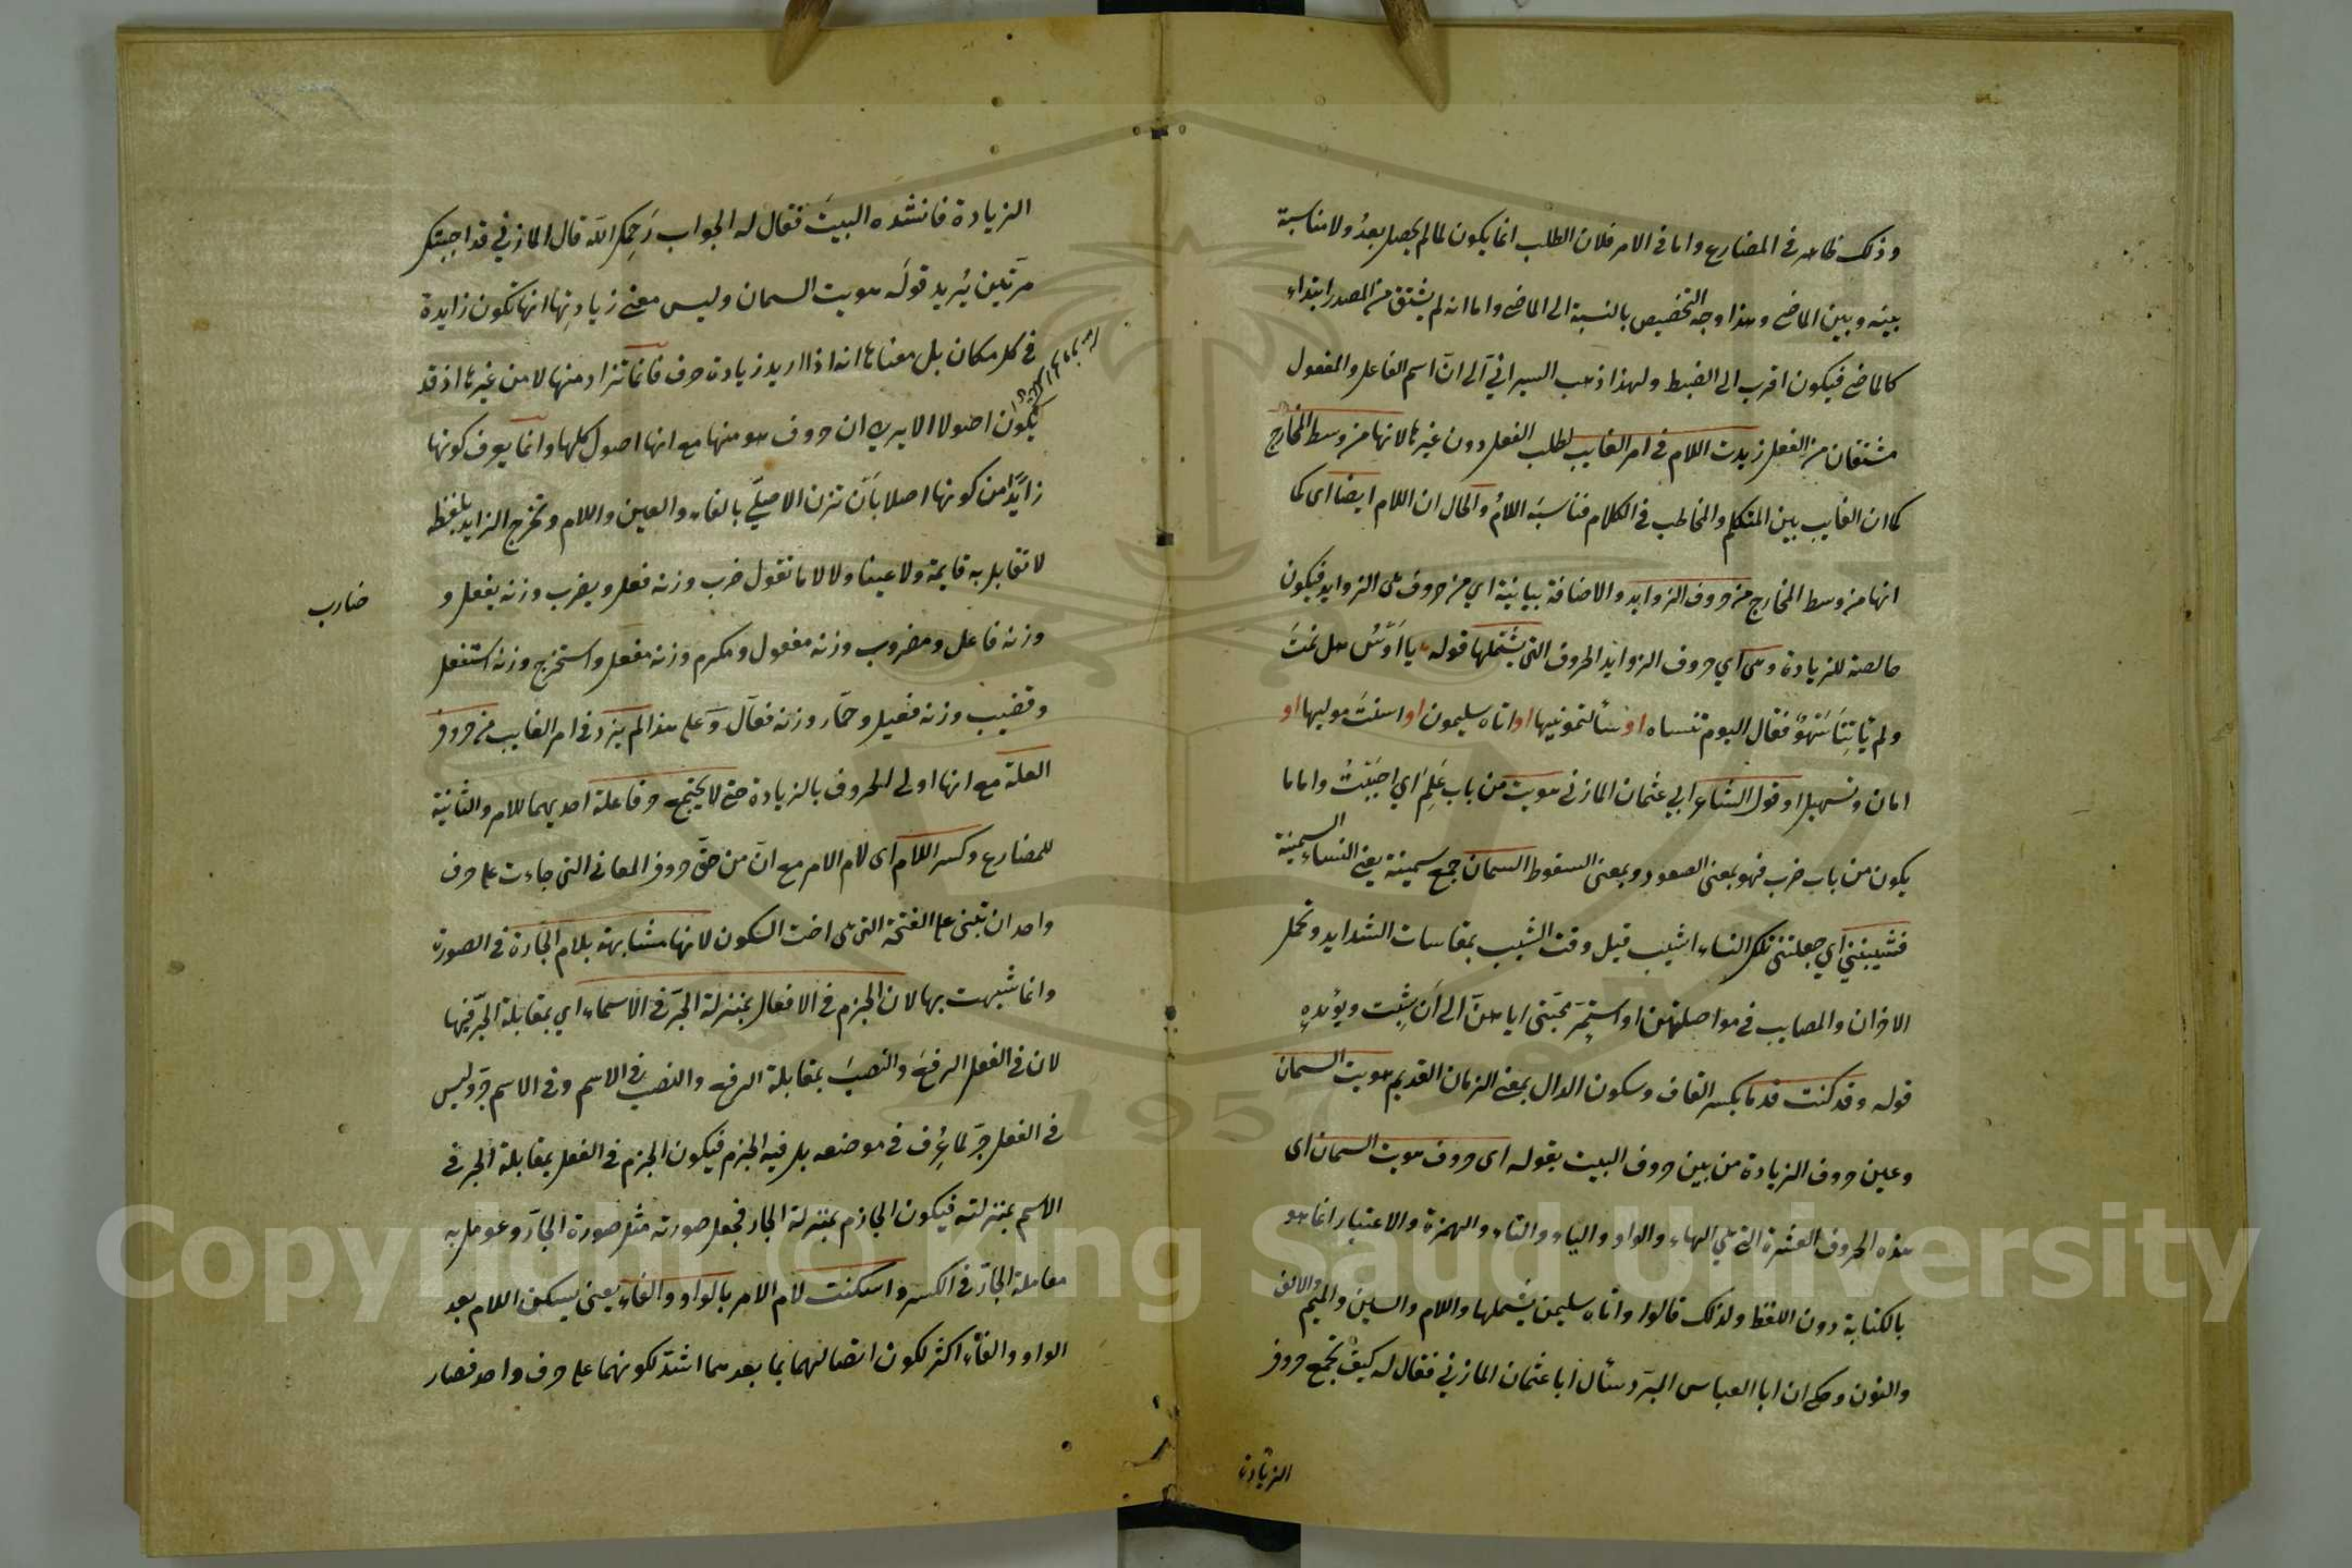 وذلك ظاهر في المضارع واما في الامر فلان الطلب انما يكون لما لم يحصل بعدُ ولا مناسبة
بينه وبين الماضي وهذا وجه التخصيص بالنسبة الى الماضي واما انه لم يشتق من المصدر ابتداء
كالماضي فيكون اقرب الى الضبط ولهذا ذهب السيرافي الى انّ اسم الفاعل والمفعول
مشتقان من الفعل زيدت اللام في امر الغايب لطلب الفعل دون غيرها لانها من وسط المخارج
كما ان الغايب بين المتكلم والمخاطب في الكلام فناسبَه اللامُ والحال ان اللام ايضا اى كما
انها من وسط المخارج من حروف الزوايد والاضافة بيانية اي من حروف هى الزوايد فيكون
صالحة للزيادة وهى اي حروف الزوايد الحروف التي يشتملها قوله يا اَوْسُ هل نمتَ
ولم يَأتِنَا سَهْوٌ فقال اليوم تنساه او سألتمونيها او اتاه سليمون او اسلمت موليها او
امان وتسهيل او قول الشاعر ابي عثمان المازني هويت من باب عَلِمَ اي احببْتُ واما ما
يكون من باب ضرب فهو بمعنى الصعود وبمعنى السقوط السمان جمع سمينة يعني النساء السمينة
فشيبنني اي جعلتني تلك النساء اشيب قبل وقت الشيب بمقاسات الشدايد وتحمل
الاحزان والمصايب في مواصلتهن او استمرّ محبّتي اياهنّ الى اَن شِبْت ويؤيده
قوله وقد كنت قدما بكسر القاف وسكون الدال بمعنى الزمان القديم هويت السمان
وعين حروف الزيادة من بين حروف البيت بقوله اى حروف هويت السمان اى
هذه الحروف العشرة التي هي الهاء والواو والياء والتاء والهمزة والاعتبار انما هو
بالكتابة دون اللفظ ولذلك قالوا واتاه سليمن يشملها واللام والسين والميم والالف
والنون وحكي ان ابا العباس المبرّد سأل ابا عثمان المازني فقال له كيف تجمع حروف
الزيادة
الزيادة فانشده البيتَ فقال له الجواب رَحِمكَ الله قال المازني قد اجبتك
مرّتين يُريد قولَه هويت السمان وليس معنى زيادتها انها تكون زايدة
في كل مكان بل معناها انه اذا اريد زيادة حرف فانما تزاد منها لا من غيرها اذ قد
يكون اصولا الا يرى ان حروف هو منها مع انها اصول كلها وانما يعرف كونها
زايدًا من كونها اصلا بأن تزن الاصليّ بالفاء والعين واللام وتخرج الزايد بلفظه
لا تقابل به فايمة ولا عينا ولا لاما تقول ضرب وزنه فعل ويضرب وزنه يفعل و
ضارب
وزنه فاعل ومضروب وزنه مفعول ومكرم وزنه مفعل واستخرج وزنه استفعل
وقضيب وزنه فعيل وحمّار وزنه فعّال وعلى هذا لم يزد في امر الغايب من حروف
العلة مع انها اولى الحروف بالزيادة حتى لا يجتمع حرفا علة احديهما للامر والثانية
للمضارع وكسر اللام اى لام الامر مع انّ من حقّ حروف المعاني التي جاءت على حرف
واحد ان تبنى على الفتحة التي هى اخت السكون لانها مشابهة بلام الجارة في الصورة
وانما شبهت بها لان الجزم في الافعال بمنزلة الجرّ في الاسماء اي بمقابلة الجرّ فيها
لان في الفعل الرفعَ والنصبَ بمقابلة الرفع والنصب في الاسم وفي الاسم جرّ وليس
في الفعل جرّ لما عُرف في موضعه بل فيه الجزم فيكون الجزم في الفعل بمقابلة الجر في
الاسم بمنزلته فيكون الجازم بمنزلة الجار فجعل صورته مثل صورة الجارّ وعومل به
معاملة الجارّ في الكسر واسكنت لام الامر بالواو والفاء يعني يسكن اللام بعد
الواو والفاء اكثر لكون اتصالهما بما بعدهما اشدّ لكونهما على حرف واحد فصار
Copyright © King Saud University
1957